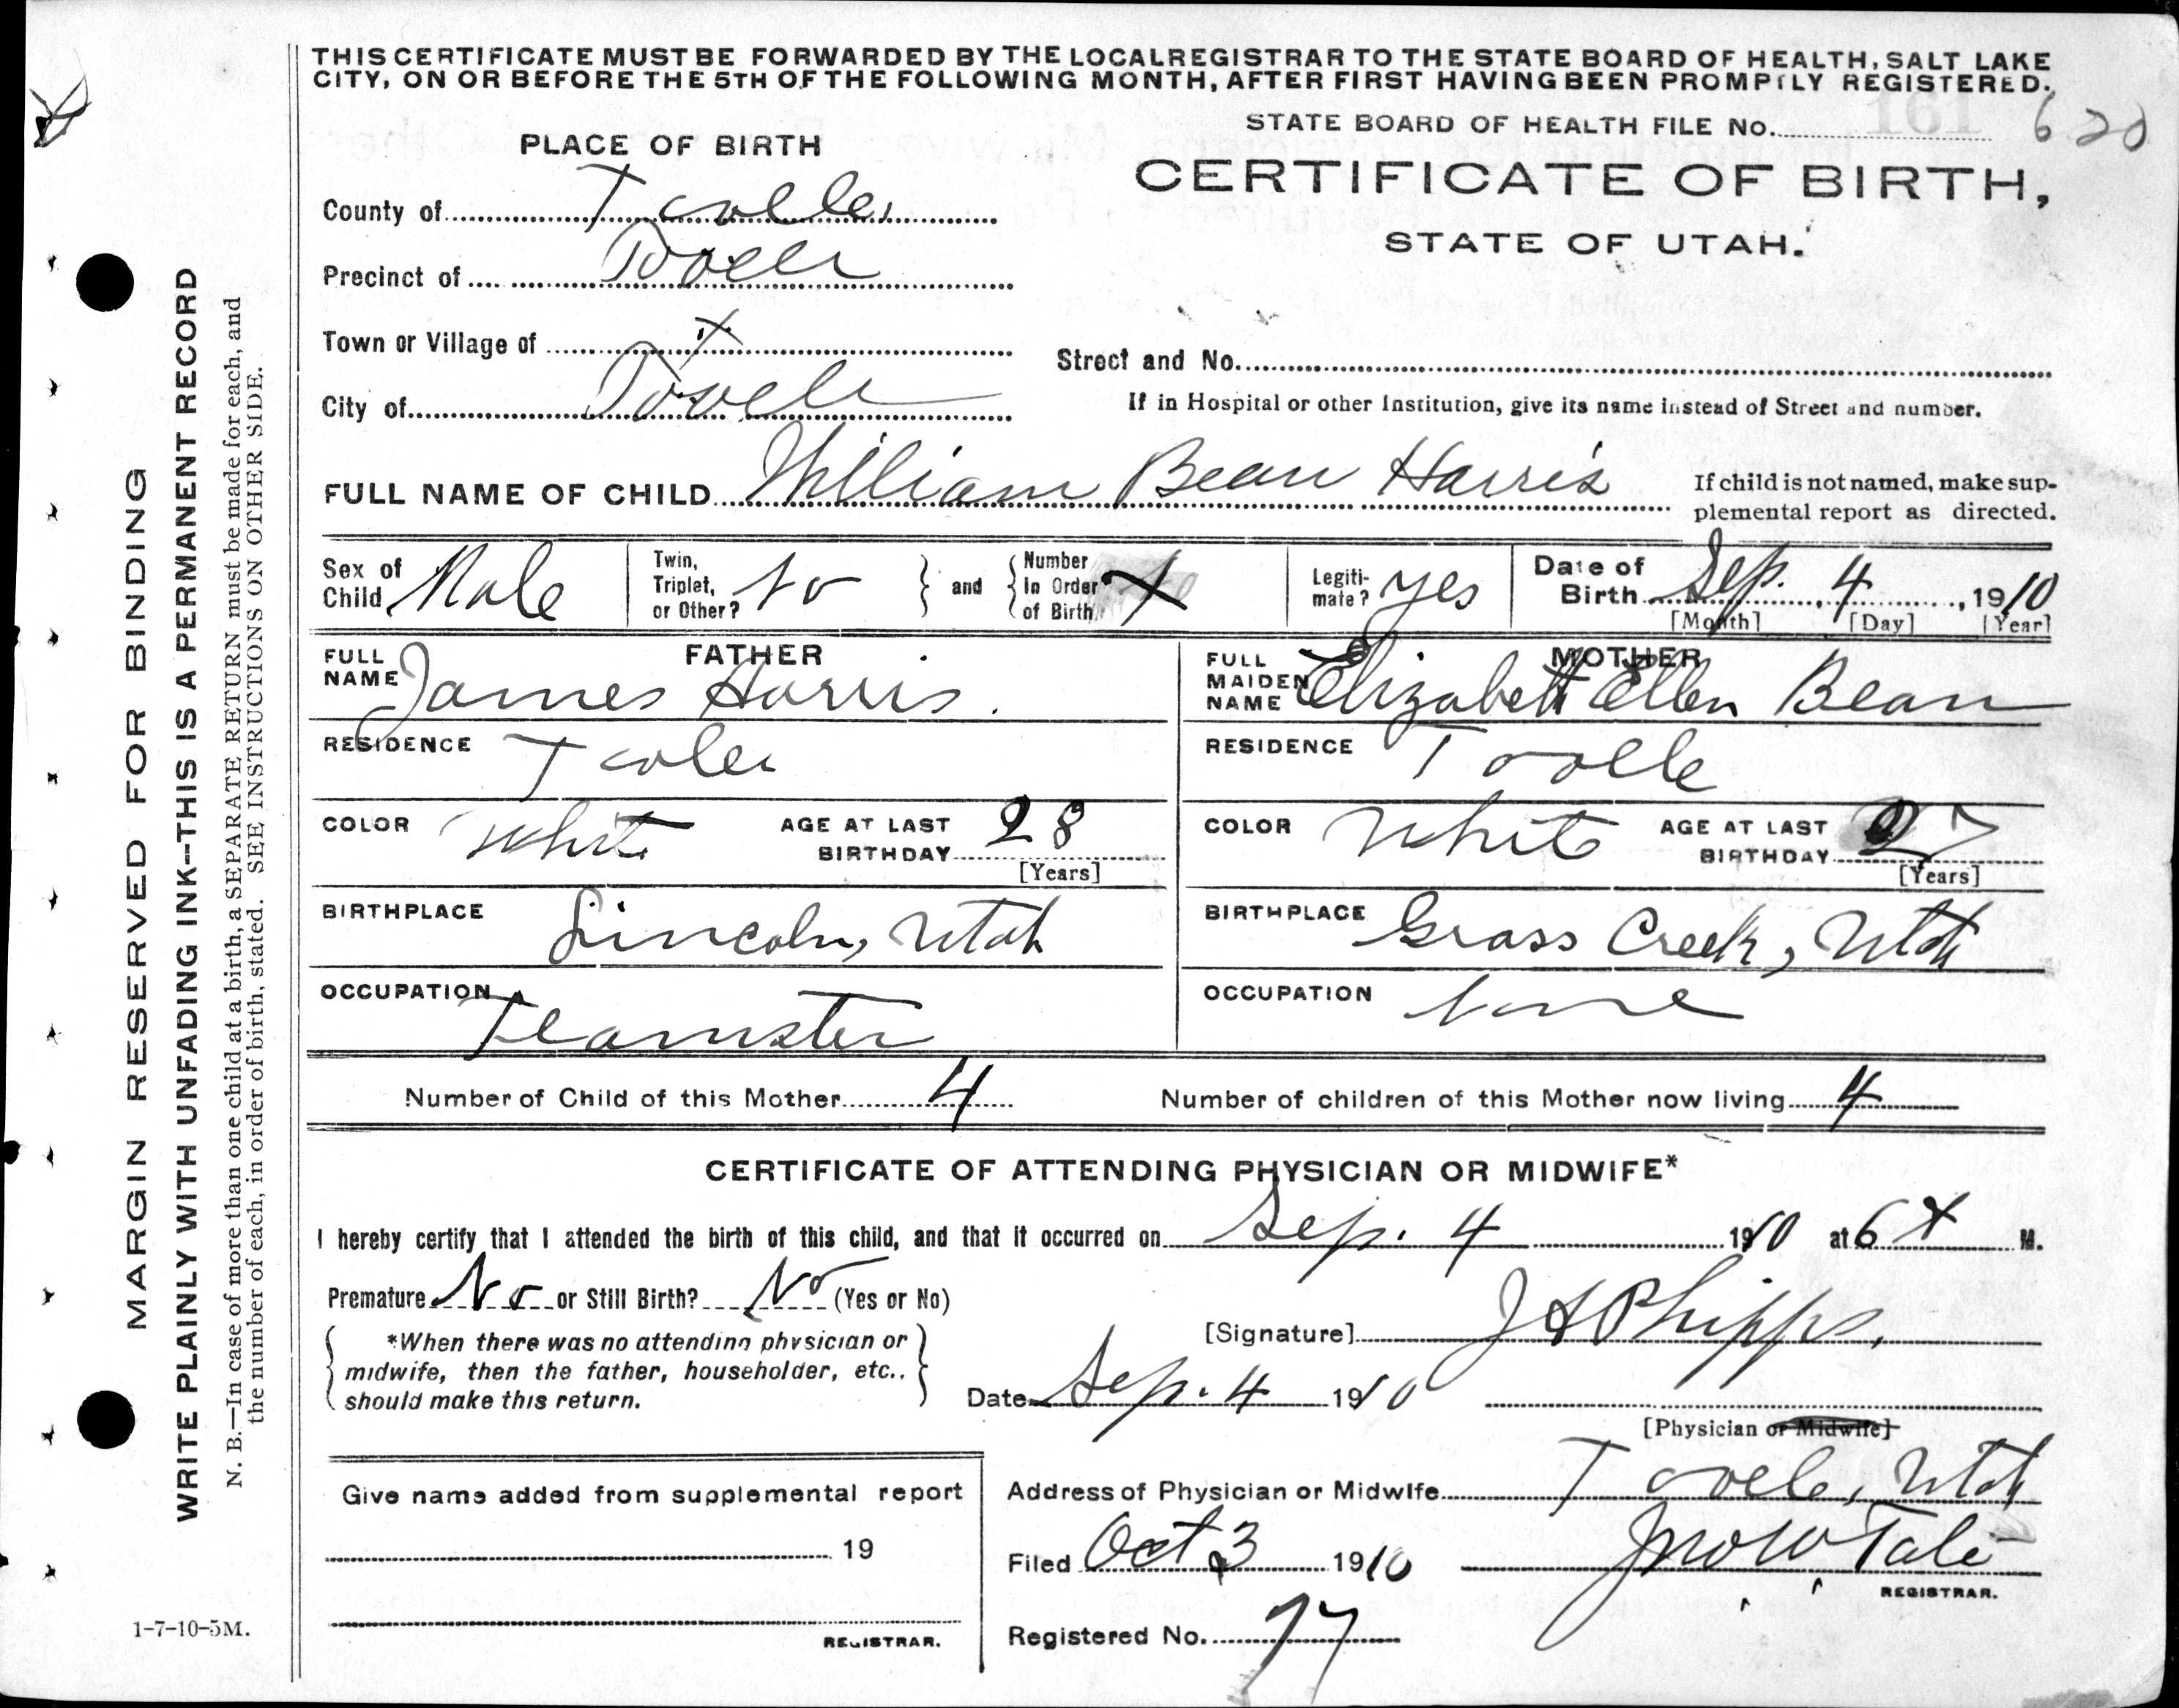 THIS CERTIFICATE MUST BE FORWARDED BY THE LOCAL REGISTRAR TO THE STATE BOARD OF HEALTH, SALT LAKE
CITY, ON OR BEFORE THE 5TH OF THE FOLLOWING MONTH, AFTER FIRST HAVING BEEN PROMPTLY REGISTERED.
STATE BOARD OF HEALTH FILE No. 161 620
PLACE OF BIRTH
CERTIFICATE OF BIRTH,
STATE OF UTAH.
County of Tooele
Precinct of Tooele
Town or Village of x
Street and No.
City of Tooele
If in Hospital or other Institution, give its name instead of Street and number.
FULL NAME OF CHILD William Bean Harris
If child is not named, make sup-
plemental report as directed.
Sex of Child Male
Twin, Triplet, or Other? No } and { Number In Order of Birth x
Legiti-mate? yes
Date of Birth Sep. 4, 1910
[Month] [Day] [Year]
FATHER
FULL NAME James Harris.
RESIDENCE Tooele
COLOR White AGE AT LAST BIRTHDAY 28
[Years]
BIRTHPLACE Lincoln, Utah
OCCUPATION Teamster
MOTHER
FULL MAIDEN NAME Elizabeth Ellen Bean
RESIDENCE Tooele
COLOR White AGE AT LAST BIRTHDAY 27
[Years]
BIRTHPLACE Grass Creek, Utah
OCCUPATION None
Number of Child of this Mother 4 Number of children of this Mother now living 4
CERTIFICATE OF ATTENDING PHYSICIAN OR MIDWIFE*
I hereby certify that I attended the birth of this child, and that it occurred on Sep. 4 1910 at 6 M.
Premature No or Still Birth? No (Yes or No)
*When there was no attending physician or
midwife, then the father, householder, etc..
should make this return.
[Signature] J A Phipps.
Date Sep. 4 1910
[Physician or Midwife]
Give name added from supplemental report
19
REGISTRAR.
Address of Physician or Midwife Tooele, Utah
Filed Oct 3 1910 Jno W Tate
REGISTRAR.
Registered No. 77
MARGIN RESERVED FOR BINDING
WRITE PLAINLY WITH UNFADING INK--THIS IS A PERMANENT RECORD
N. B.—In case of more than one child at a birth, a SEPARATE RETURN must be made for each, and
the number of each, in order of birth, stated. SEE INSTRUCTIONS ON OTHER SIDE.
1-7-10-5M.